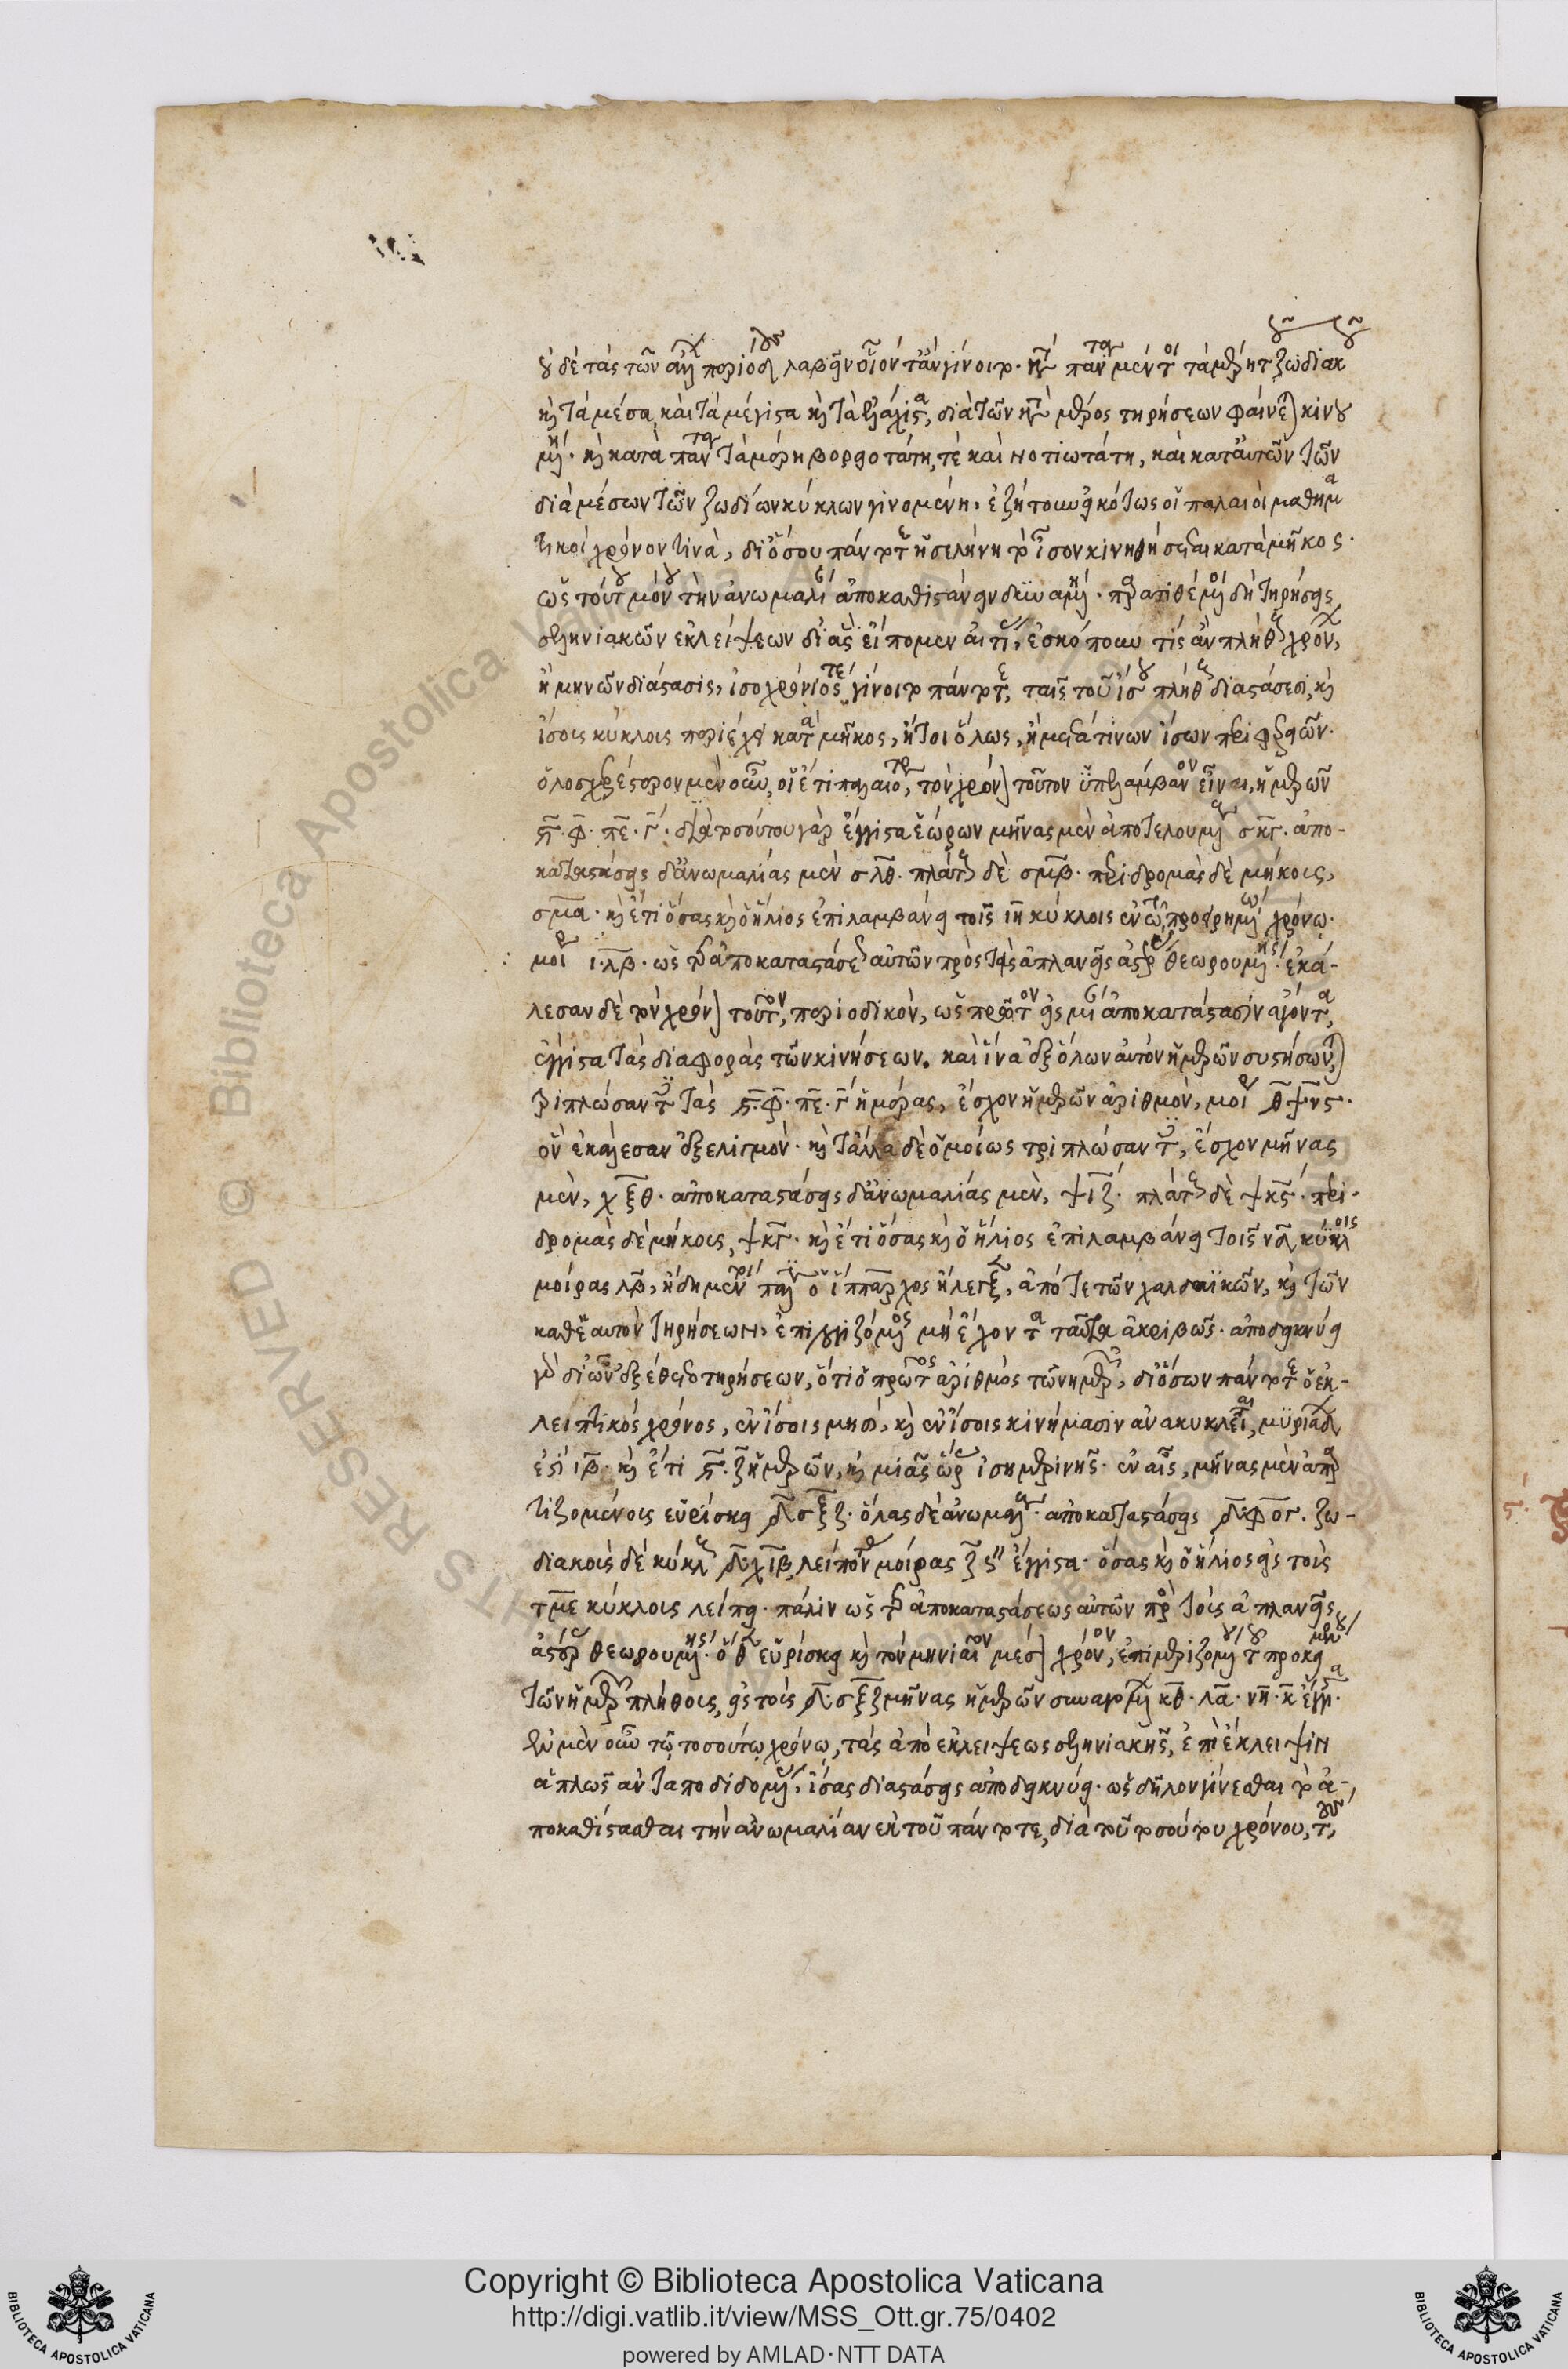 οὐδὲ τὰς τῶν ἄλλων περιόδους λαβεῖν οἷόν τ' ἂν γίνοιτο· κατὰ πάντα μέντοι τὰ μέρη τοῦ ζωδιακοῦ
καὶ τὰ μέσα καὶ τὰ μέγιστα καὶ τὰ ἐλάχιστα, διὰ τῶν κατὰ μέρος τηρήσεων φαίνεται κινου
μένη· καὶ κατὰ πάντα τὰ μέρη βορειοτάτη, τὲ καὶ νοτιωτάτη, καὶ κατ' αὐτῶν τῶν
διὰ μέσων τῶν ζωδίων κύκλων γινομένη. ἐζήτουν εἰκότως οἱ παλαιοὶ μαθημα
τικοὶ χρόνον τινὰ, δι' ὅσου πάντοτε ἡ σελήνη τὸ ἴσον κινηθήσεται κατὰ μῆκος·
ὡς τούτου μόνου τὴν ἀνωμαλίαν ἀποκαθιστάνειν δυναμένου· παρατιθέμενοι δὴ τηρήσεις
σεληνιακῶν ἐκλείψεων δι' ἃς εἴπομεν αἰτίας, ἐσκόπουν τίς ἂν πλήθους χρόνων,
ἢ μηνῶν διάστασις, ἰσοχρόνιός τε γίνοιτο πάντοτε, ταῖς τοῦ ἴσου πλήθους διαστάσεσι, καὶ
ἴσους κύκλους περιέχει κατὰ μῆκος, ἤτοι ὅλως, ἢ μετά τινων ἴσων περιφερειῶν·
ὁλοσχερέστερον μὲν οὖν, οἱ ἔτι παλαιότεροι, τὸν χρόνον τοῦτον ὑπελάμβανον εἶναι, ἡμερῶν
ϛ φ πε γ´· διὰ τοσούτου γὰρ ἔγγιστα ἑώρων μῆνας μὲν ἀποτελουμένους σκγ· ἀπο-
καταστάσεις δ' ἀνωμαλίας μὲν σλθ· πλάτους δὲ σμβ· περιδρομὰς δὲ μήκους,
σμα· καὶ ἔτι ὅσας καὶ ὁ ἥλιος ἐπιλαμβάνει τοῖς ιη κύκλοις ἐν τῷ προειρημένῳ χρόνῳ·
μοίρας ι λβ· ὡς τῆς ἀποκαταστάσεως αὐτῶν πρὸς τοὺς ἀπλανεῖς ἀστέρας θεωρουμένης· ἐκά-
λεσαν δὲ τὸν χρόνον τοῦτον, περιοδικὸν, ὡς πρῶτον εἰς μίαν ἀποκατάστασιν ἄγοντα,
ἔγγιστα τὰς διαφορὰς τῶν κινήσεων. καὶ ἵνα ἐξ ὅλων αὐτὸν ἡμερῶν συστήσωνται,
τριπλώσαντες τὰς ϛ φ πε γ´ ἡμέρας, ἔσχον ἡμερῶν ἀριθμὸν, μοι θ ψνϛ·
ὃν ἐκάλεσαν ἐξελιγμόν· καὶ τἄλλα δὲ ὁμοίως τριπλώσαντες, ἔσχον μῆνας
μὲν, χξθ· ἀποκαταστάσεις δ' ἀνωμαλίας μὲν, ψιζ· πλάτους δὲ ψκϛ· περι-
δρομὰς δὲ μήκους, ψκγ· καὶ ἔτι ὅσας καὶ ὁ ἥλιος ἐπιλαμβάνει τοῖς νδ κύκλοις
μοίρας λβ, ἤδη μέντοι πάλιν ὁ ἵππαρχος ἤλεγξεν, ἀπό τε τῶν χαλδαϊκῶν, καὶ τῶν
καθ' ἑαυτὸν τηρήσεων, ἐπιλογιζόμενος μὴ ἔχοντα ταῦτα ἀκριβῶς· ἀποδεικνύει
γὰρ δι' ὧν ἐξέθετο τηρήσεων, ὅτι ὁ πρῶτος ἀριθμὸς τῶν ἡμερῶν, δι' ὅσων πάντοτε ὁ ἐκ-
λειπτικὸς χρόνος, ἐν ἴσοις μησὶ, καὶ ἐν ἴσοις κινήμασιν ἀνακυκλεῖται, μυριάδων
ἐστὶ ιβ· καὶ ἔτι ϛ ζ ἡμερῶν, καὶ μιᾶς ὥρας ἰσημερινῆς· ἐν αἷς, μῆνας μὲν ἀπαρ
τιζομένους εὑρίσκει δσξζ· ὅλας δὲ ἀνωμαλίας ἀποκαταστάσεις δφογ· ζω-
διακοὺς δὲ κύκλους δχιβ, λείποντας μοίρας ζ ς´´ ἔγγιστα· ὅσας καὶ ὁ ἥλιος εἰς τοὺς
τμε κύκλους λείπει· πάλιν ὡς τῆς ἀποκαταστάσεως αὐτῶν πρὸς τοὺς ἀπλανεῖς
ἀστέρας θεωρουμένης· ὅθεν εὑρίσκει καὶ τὸν μηνιαῖον μέσον χρόνον, ἐπιμεριζομένου τοῦ προκειμένου
τῶν ἡμερῶν πλήθους, εἰς τοὺς δσξζ μῆνας ἡμερῶν συναγομένων κθ· λα· νη· κ ἔγγιστα·
ἐν μὲν οὖν τῷ τοσούτῳ χρόνῳ, τὰς ἀπὸ ἐκλείψεως σεληνιακῆς, ἐπὶ ἔκλειψιν
ἁπλῶς ἀνταποδιδομένας, ἴσας διαστάσεις ἀποδεικνύει· ὡς δῆλον γίνεσθαι τὸ ἀ-
ποκαθίστασθαι τὴν ἀνωμαλίαν ἐκ τοῦ πάντοτε, διὰ τοῦ τοσούτου χρόνου, τοὺς
Copyright © Biblioteca Apostolica Vaticana
http://digi.vatlib.it/view/MSS_Ott.gr.75/0402
powered by AMLAD·NTT DATA